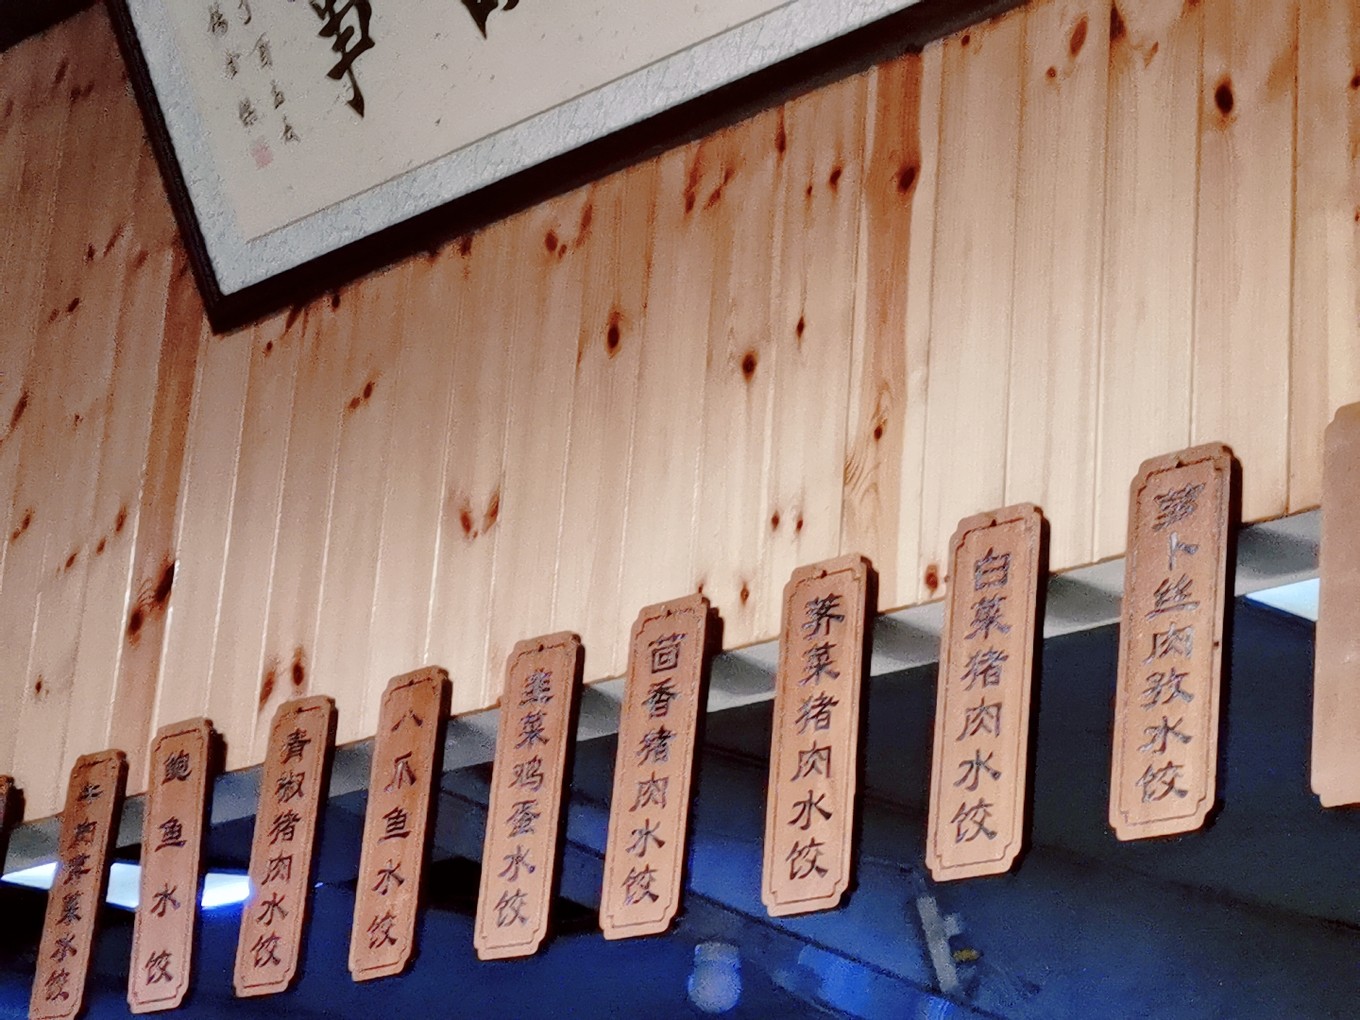 事
牛肉芹菜水饺
鲍鱼水饺
青椒猪肉水饺
八爪鱼水饺
韭菜鸡蛋水饺
茴香猪肉水饺
荠菜猪肉水饺
白菜猪肉水饺
萝卜丝肉孜水饺